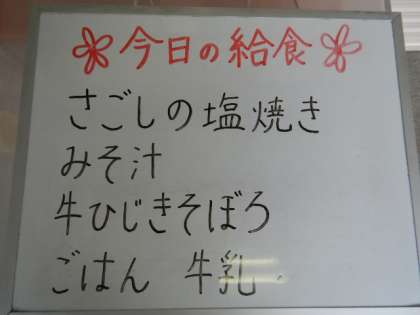 今日の給食
さごしの塩焼き
みそ汁
牛ひじきそぼろ
ごはん 牛乳